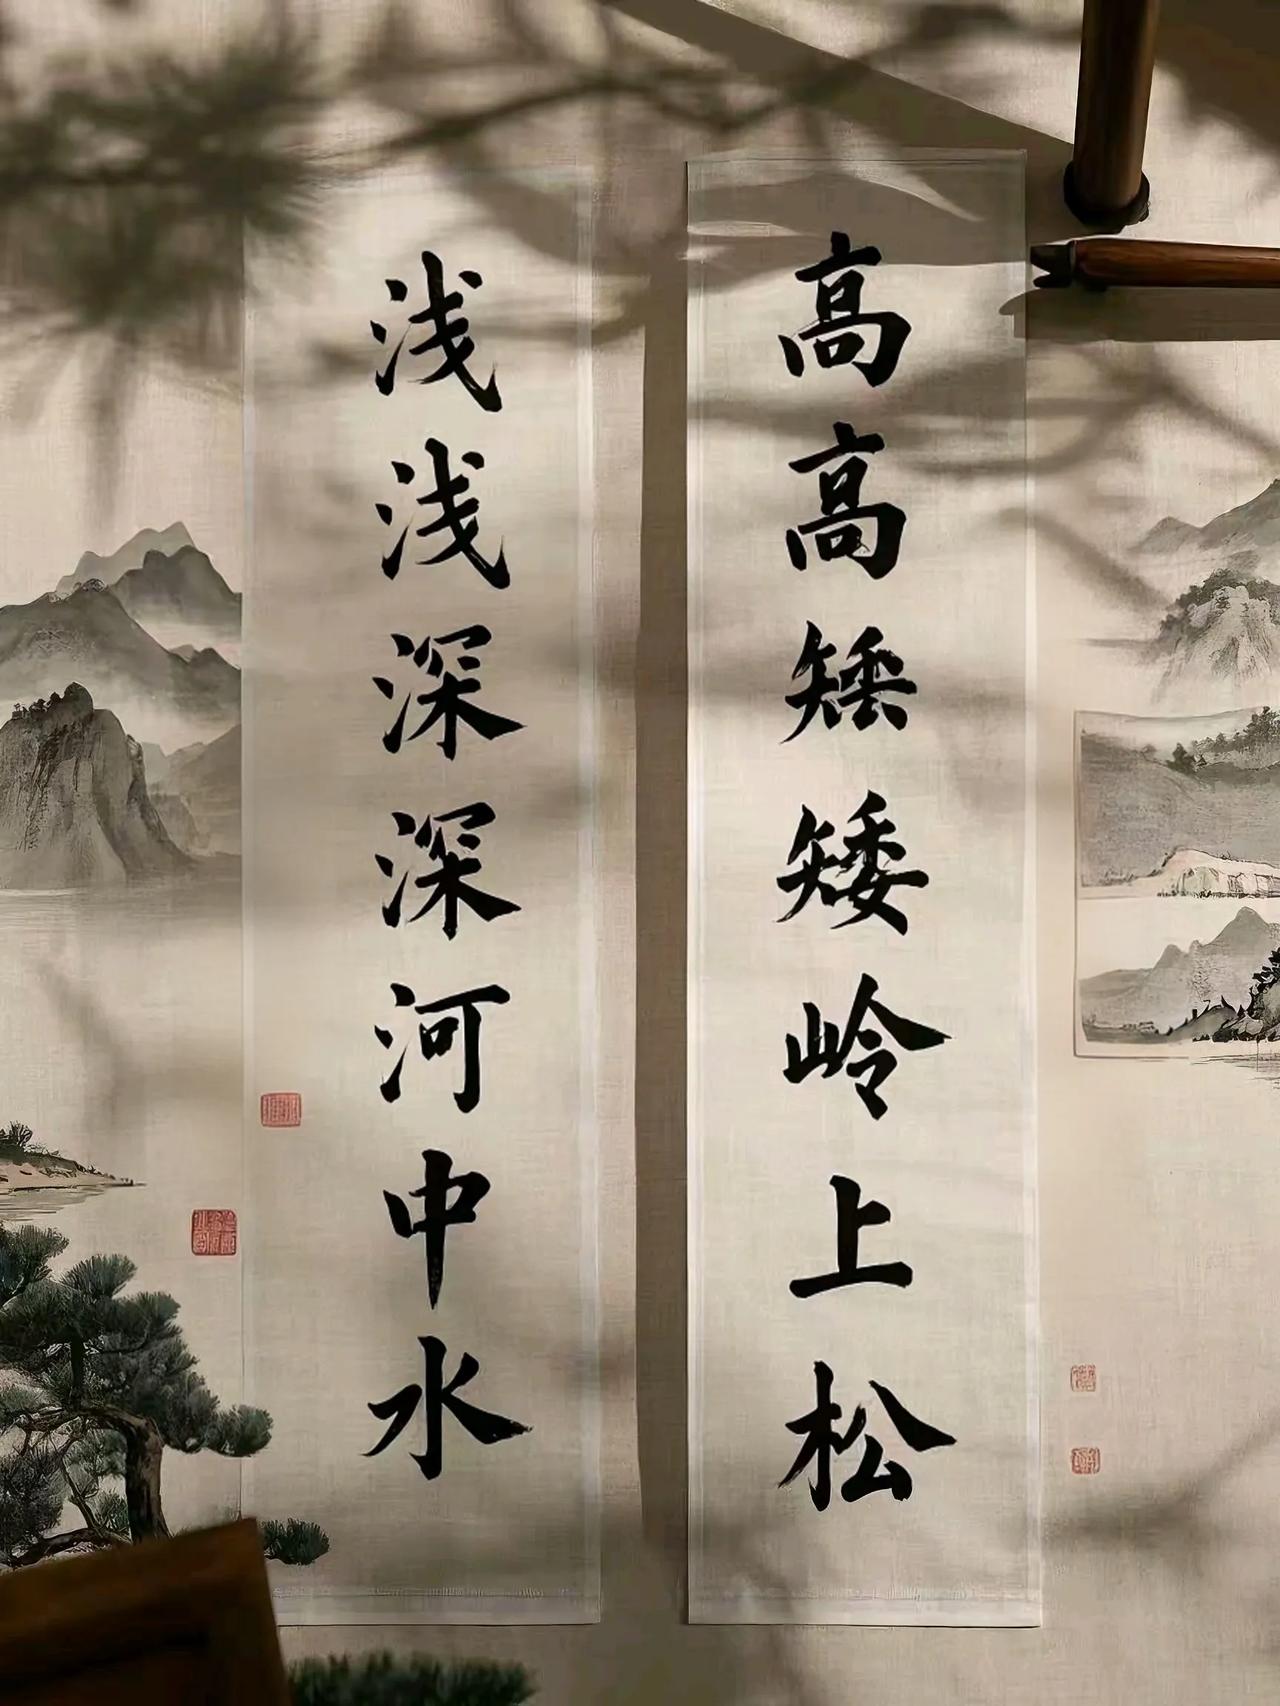 高高矮矮岭上松
浅浅深深河中水